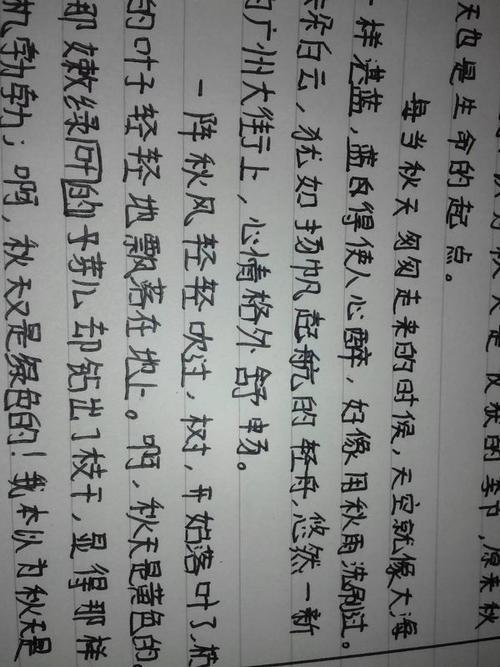 天是收获的季节，原来秋
天也是生命的起点。
每当秋天匆匆走来的时候，天空就像大海
一样湛蓝，蓝得使人心醉，好像用秋雨洗刷过。
朵白云，犹如扬帆起航的轻舟，悠然一新
的广州大街上，心情格外舒畅。
一阵秋风轻轻吹过，树，开始落叶了，
的叶子轻轻地飘落在地上。啊，秋天是黄色的。
那嫩绿的芽儿却钻出了枝干，显得那样
机勃勃；啊，秋天又是绿色的！我本以为秋天是